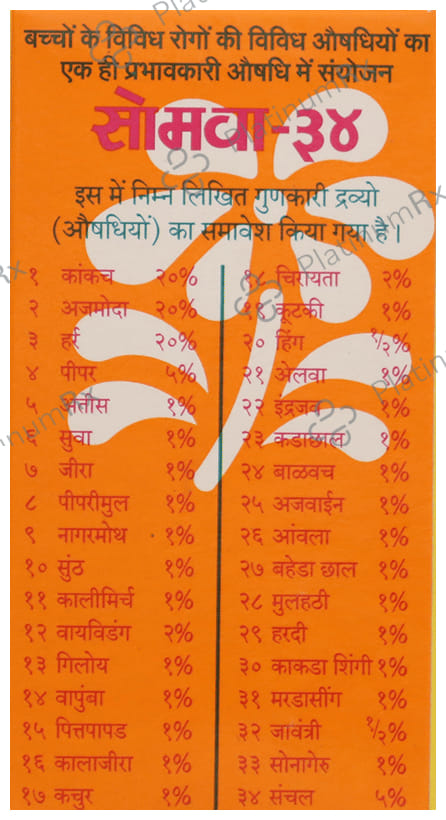 बच्चों के विविध रोगों की विविध औषधियों का
एक ही प्रभावकारी औषधि में संयोजन
सोमवा-३४
इस में निम्न लिखित गुणकारी द्रव्यो
(औषधियों) का समावेश किया गया है।
१ कांकच २०%
२ अजमोदा २०%
३ हर्र २०%
४ पीपर ५%
५ अतीस १%
६ सुवा १%
७ जीरा १%
८ पीपरीमुल १%
९ नागरमोथ १%
१० सुंठ १%
११ कालीमिर्च १%
१२ वायविडंग २%
१३ गिलोय १%
१४ वापुंबा १%
१५ पित्तपापड १%
१६ कालाजीरा १%
१७ कचुर १%
१८ चिरायता २%
१९ कूटकी १%
२० हिंग १/२%
२१ अेलवा १%
२२ इंद्रजव १%
२३ कडाछाल १%
२४ बाळवच १%
२५ अजवाईन १%
२६ आंवला १%
२७ बहेडा छाल १%
२८ मुलहठी १%
२९ हरदी १%
३० काकडा शिंगी १%
३१ मरडासींग १%
३२ जावंत्री १/२%
३३ सोनागेरु १%
३४ संचल ५%
PlatinumRx